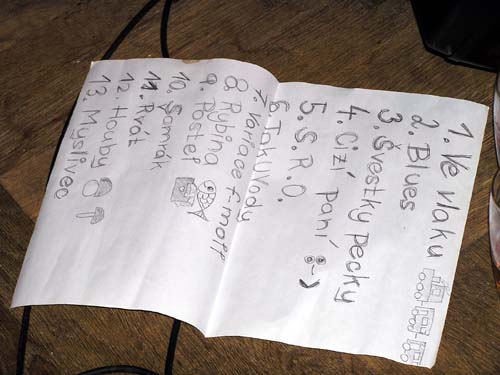 1. Ve vlaku
2. Blues
3. Švestky pecky
4. Cizí paní
5. S.R.O.
6. Tokyvody
7. Variace f-moll
8. Rybina
9. Postel
10. Šamrák
11. Rváž
12. Houby
13. Myslivec